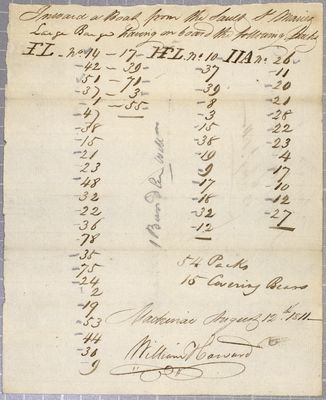 Inward a Boat from the Sault St Maries
Large Barge having on board the following Packs
FL - No 14 - 17 - HFL No 10 - IIA No 26
- 42 - 39 - 37 - 11
- 51 - 70 - 39 - 20
- 37 - 3 - 8 - 21
- 1 - 55 - 3 - 28
- 47 - 15 - 22
- 38 - 38 - 23
- 15 - 19 - 4
- 21 - 9 - 17
- 23 - 17 - 10
- 48 - 18 - 12
- 32 - 32 - 27
- 22 - 12
- 36
- 78
- 35
- 75
- 24
- 2
- 19
- 53
- 44
- 30
- 9
1 Bundle
54 Packs
15 Covering Bears
Mackinac August 12th 1811
William Howard